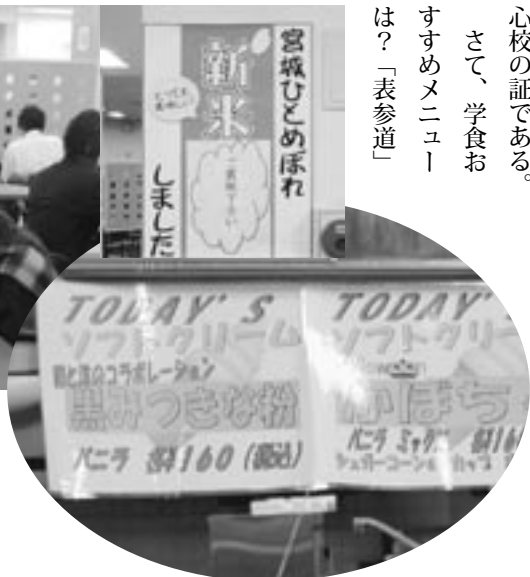 心校の証である。
さて、学食お
すすめメニュー
は？「表参道」
宮城ひとめぼれ
新米
とっても
美味しい
ご賞味下さい
しました
TODAY'S
ソフトクリーム
コラボレーション
黒みつきな粉
バニラ 各¥160 (税込)
TODAY'
ソフトクリー
かぼち
バニラ ミックス 各¥16
シュガーコーン カップ